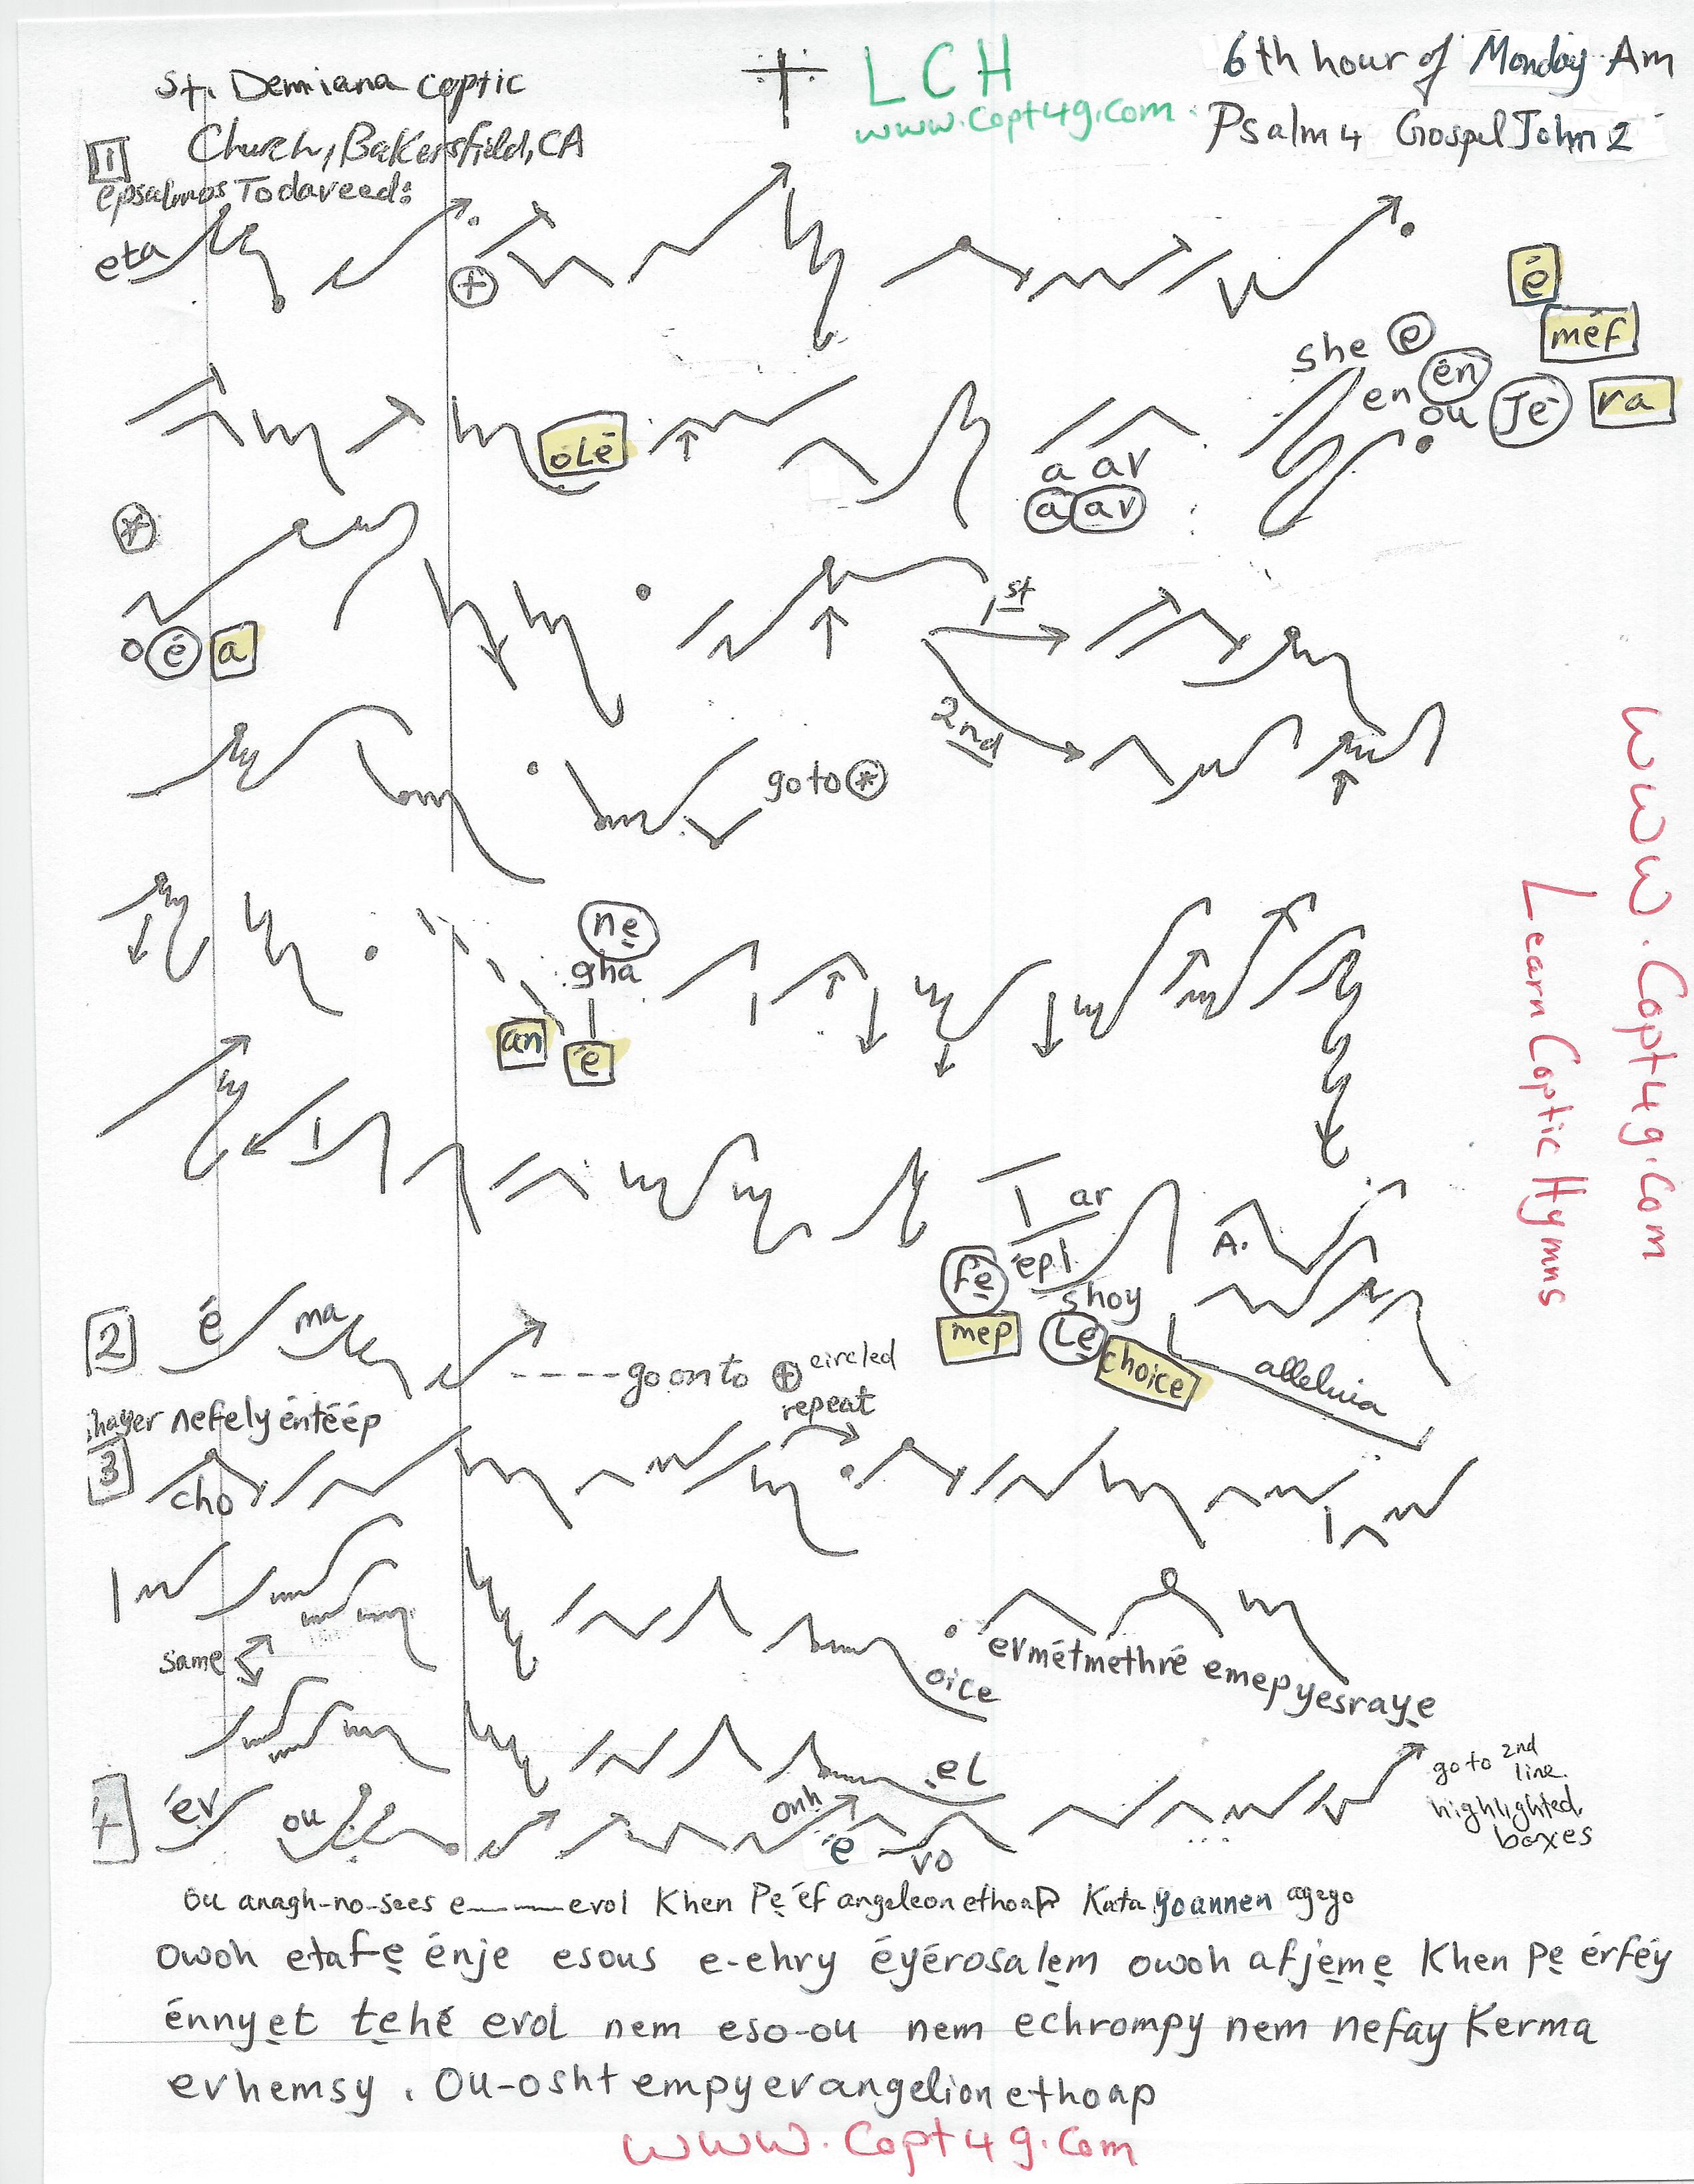 St. Demiana Coptic
Church, Bakersfield, CA
LCH
www.Copt4g.com
6th hour of Monday Am
Psalm 4 Gospel John 2
1
epsalmos Todaveed:
eta
é
she e
méf
en én
ou Jé ra
olé
a av
a av
o é a
1st
2nd
go to *
ne
gha
an é
ar
fe épl
shoy
mep Lé
choice
A.
alleluia
www.Copt4g.com
Learn Coptic Hymns
2
é ma
go on to + circled
repeat
nefely éntéép
3
cho
same
oice
evmétmethré emepyesraye
el
4
év ou
onh
é
vo
go to 2nd
line.
highlighted
boxes
ou anagh-no-sees e evol Khen Pe éf angeleon ethoap Kata Yoannen agego
owoh etafe énje esous e-ehry éyérosalem owoh afjeme Khen Pe érféy
énnyet tehé evol nem eso-ou nem echrompy nem nefay Kerma
evhemsy. Ou-osht empyevangelion ethoap
www.Copt4g.com